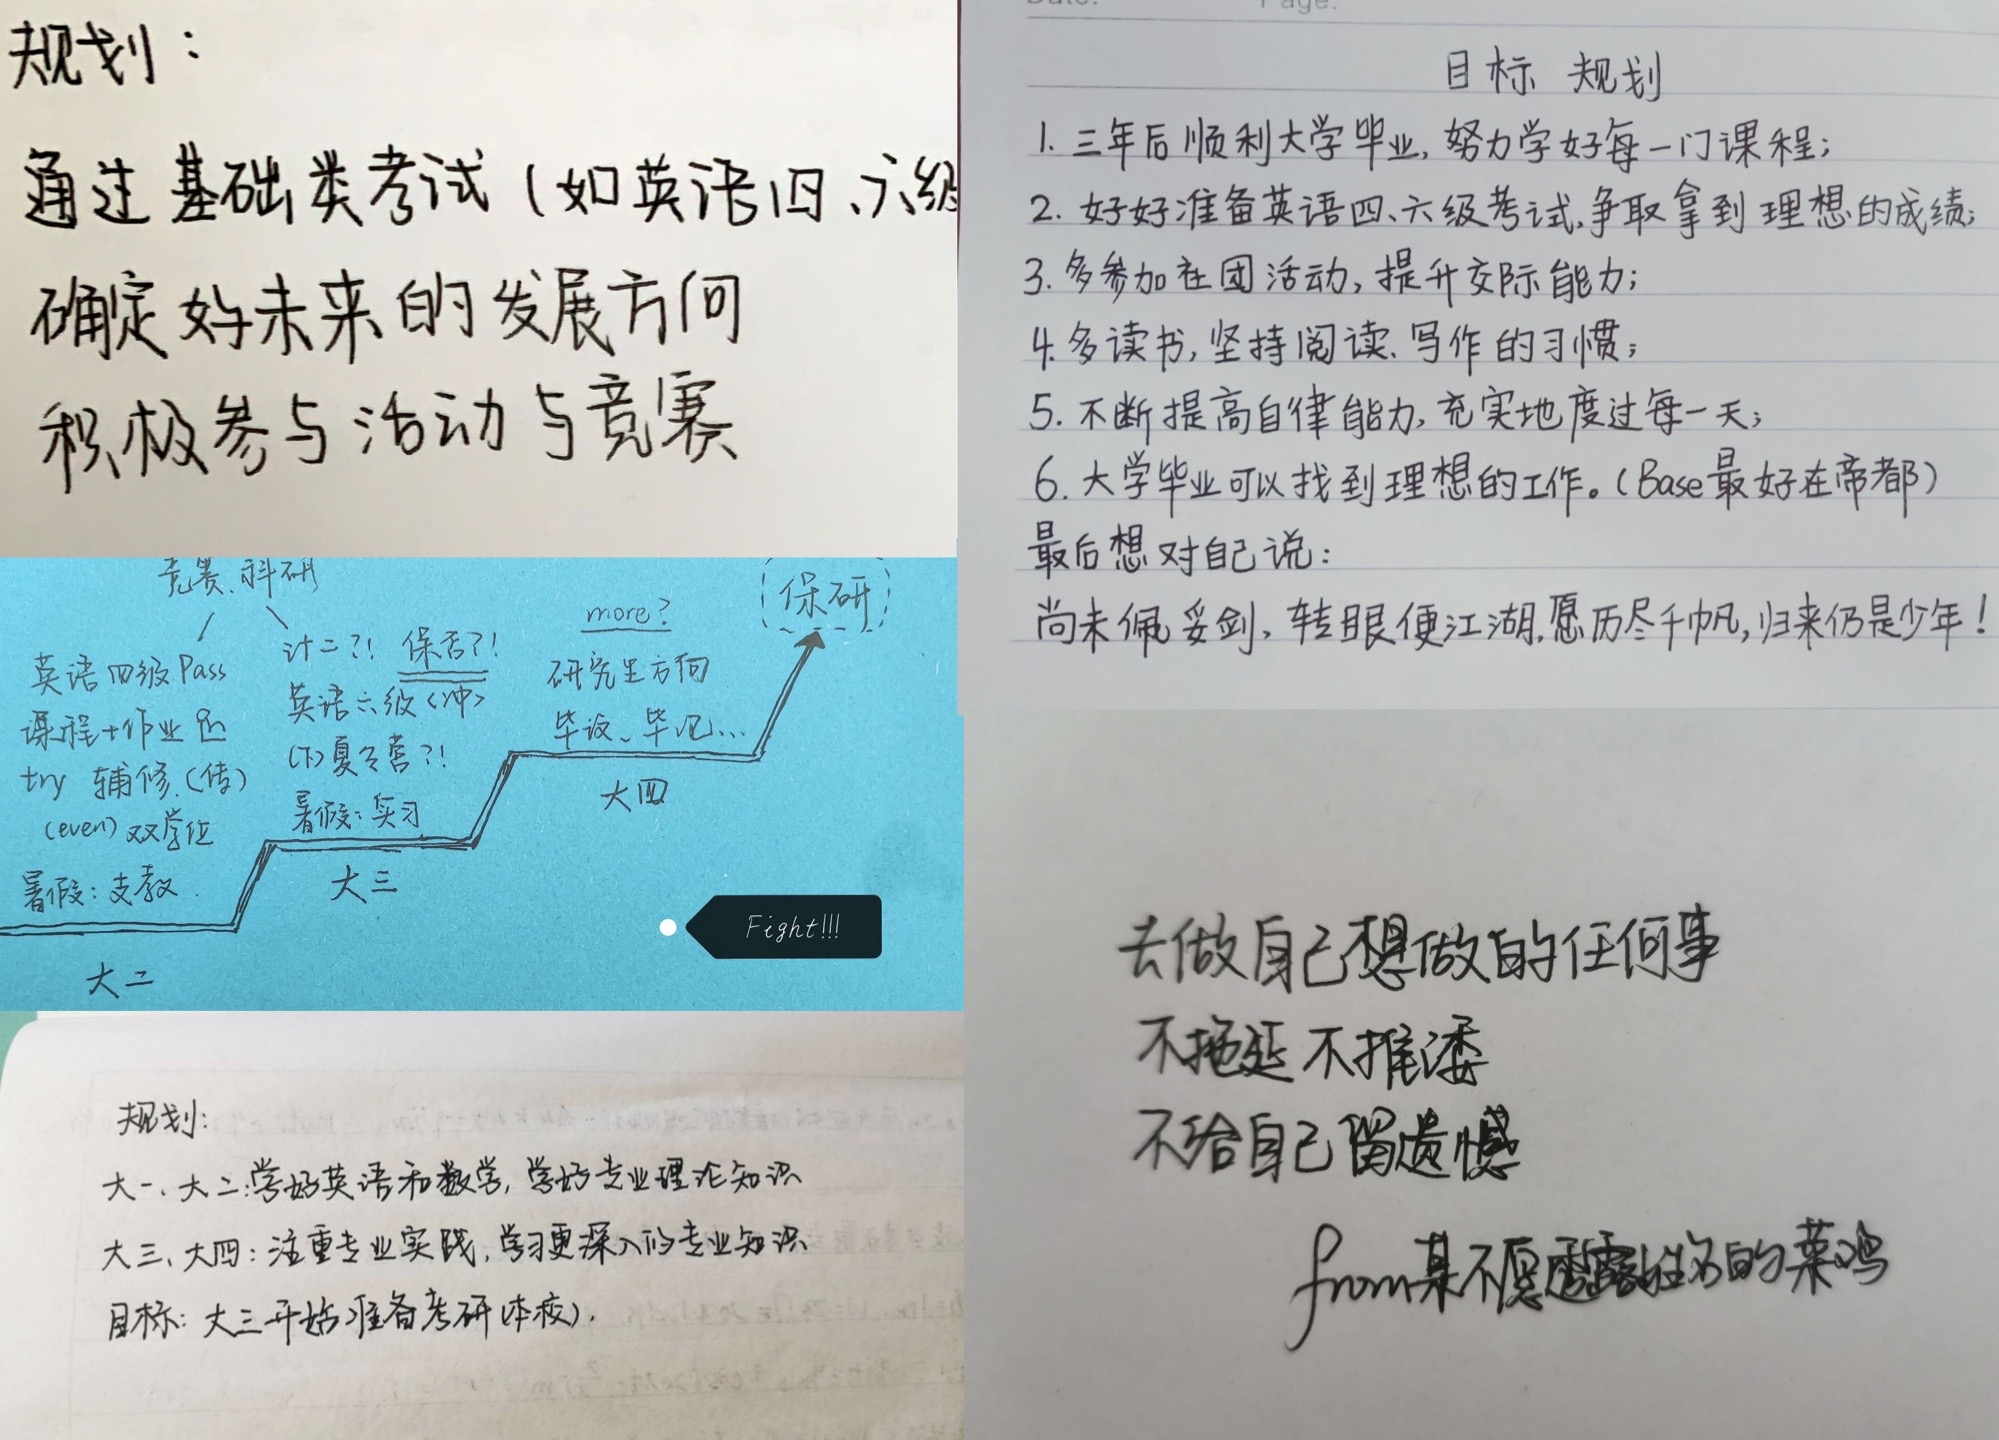 规划：
通过基础类考试（如英语四、六级
确定好未来的发展方向
积极参与活动与竞赛
目标 规划
1. 三年后顺利大学毕业,努力学好每一门课程;
2. 好好准备英语四、六级考试,争取拿到理想的成绩;
3. 多参加社团活动,提升交际能力;
4. 多读书,坚持阅读、写作的习惯;
5. 不断提高自律能力,充实地度过每一天;
6. 大学毕业可以找到理想的工作。(Base最好在帝都)
最后想对自己说:
尚未佩妥剑,转眼便江湖,愿历尽千帆,归来仍是少年!
竞赛、科研
英语四级Pass
课程+作业
try 辅修
(even)双学位
暑假:支教
大二
计二?! 保否?!
英语六级<冲>
(下)夏令营?!
暑假:实习
大三
more?
研究生方向
毕设、毕论...
大四
保研
Fight!!!
规划:
大一、大二:学好英语和数学,学好专业理论知识
大三、大四:注重专业实践,学习更深入的专业知识
目标:大三开始准备考研(本校).
去做自己想做的任何事
不拖延 不推诿
不给自己留遗憾
from某不愿透露姓名的菜鸡